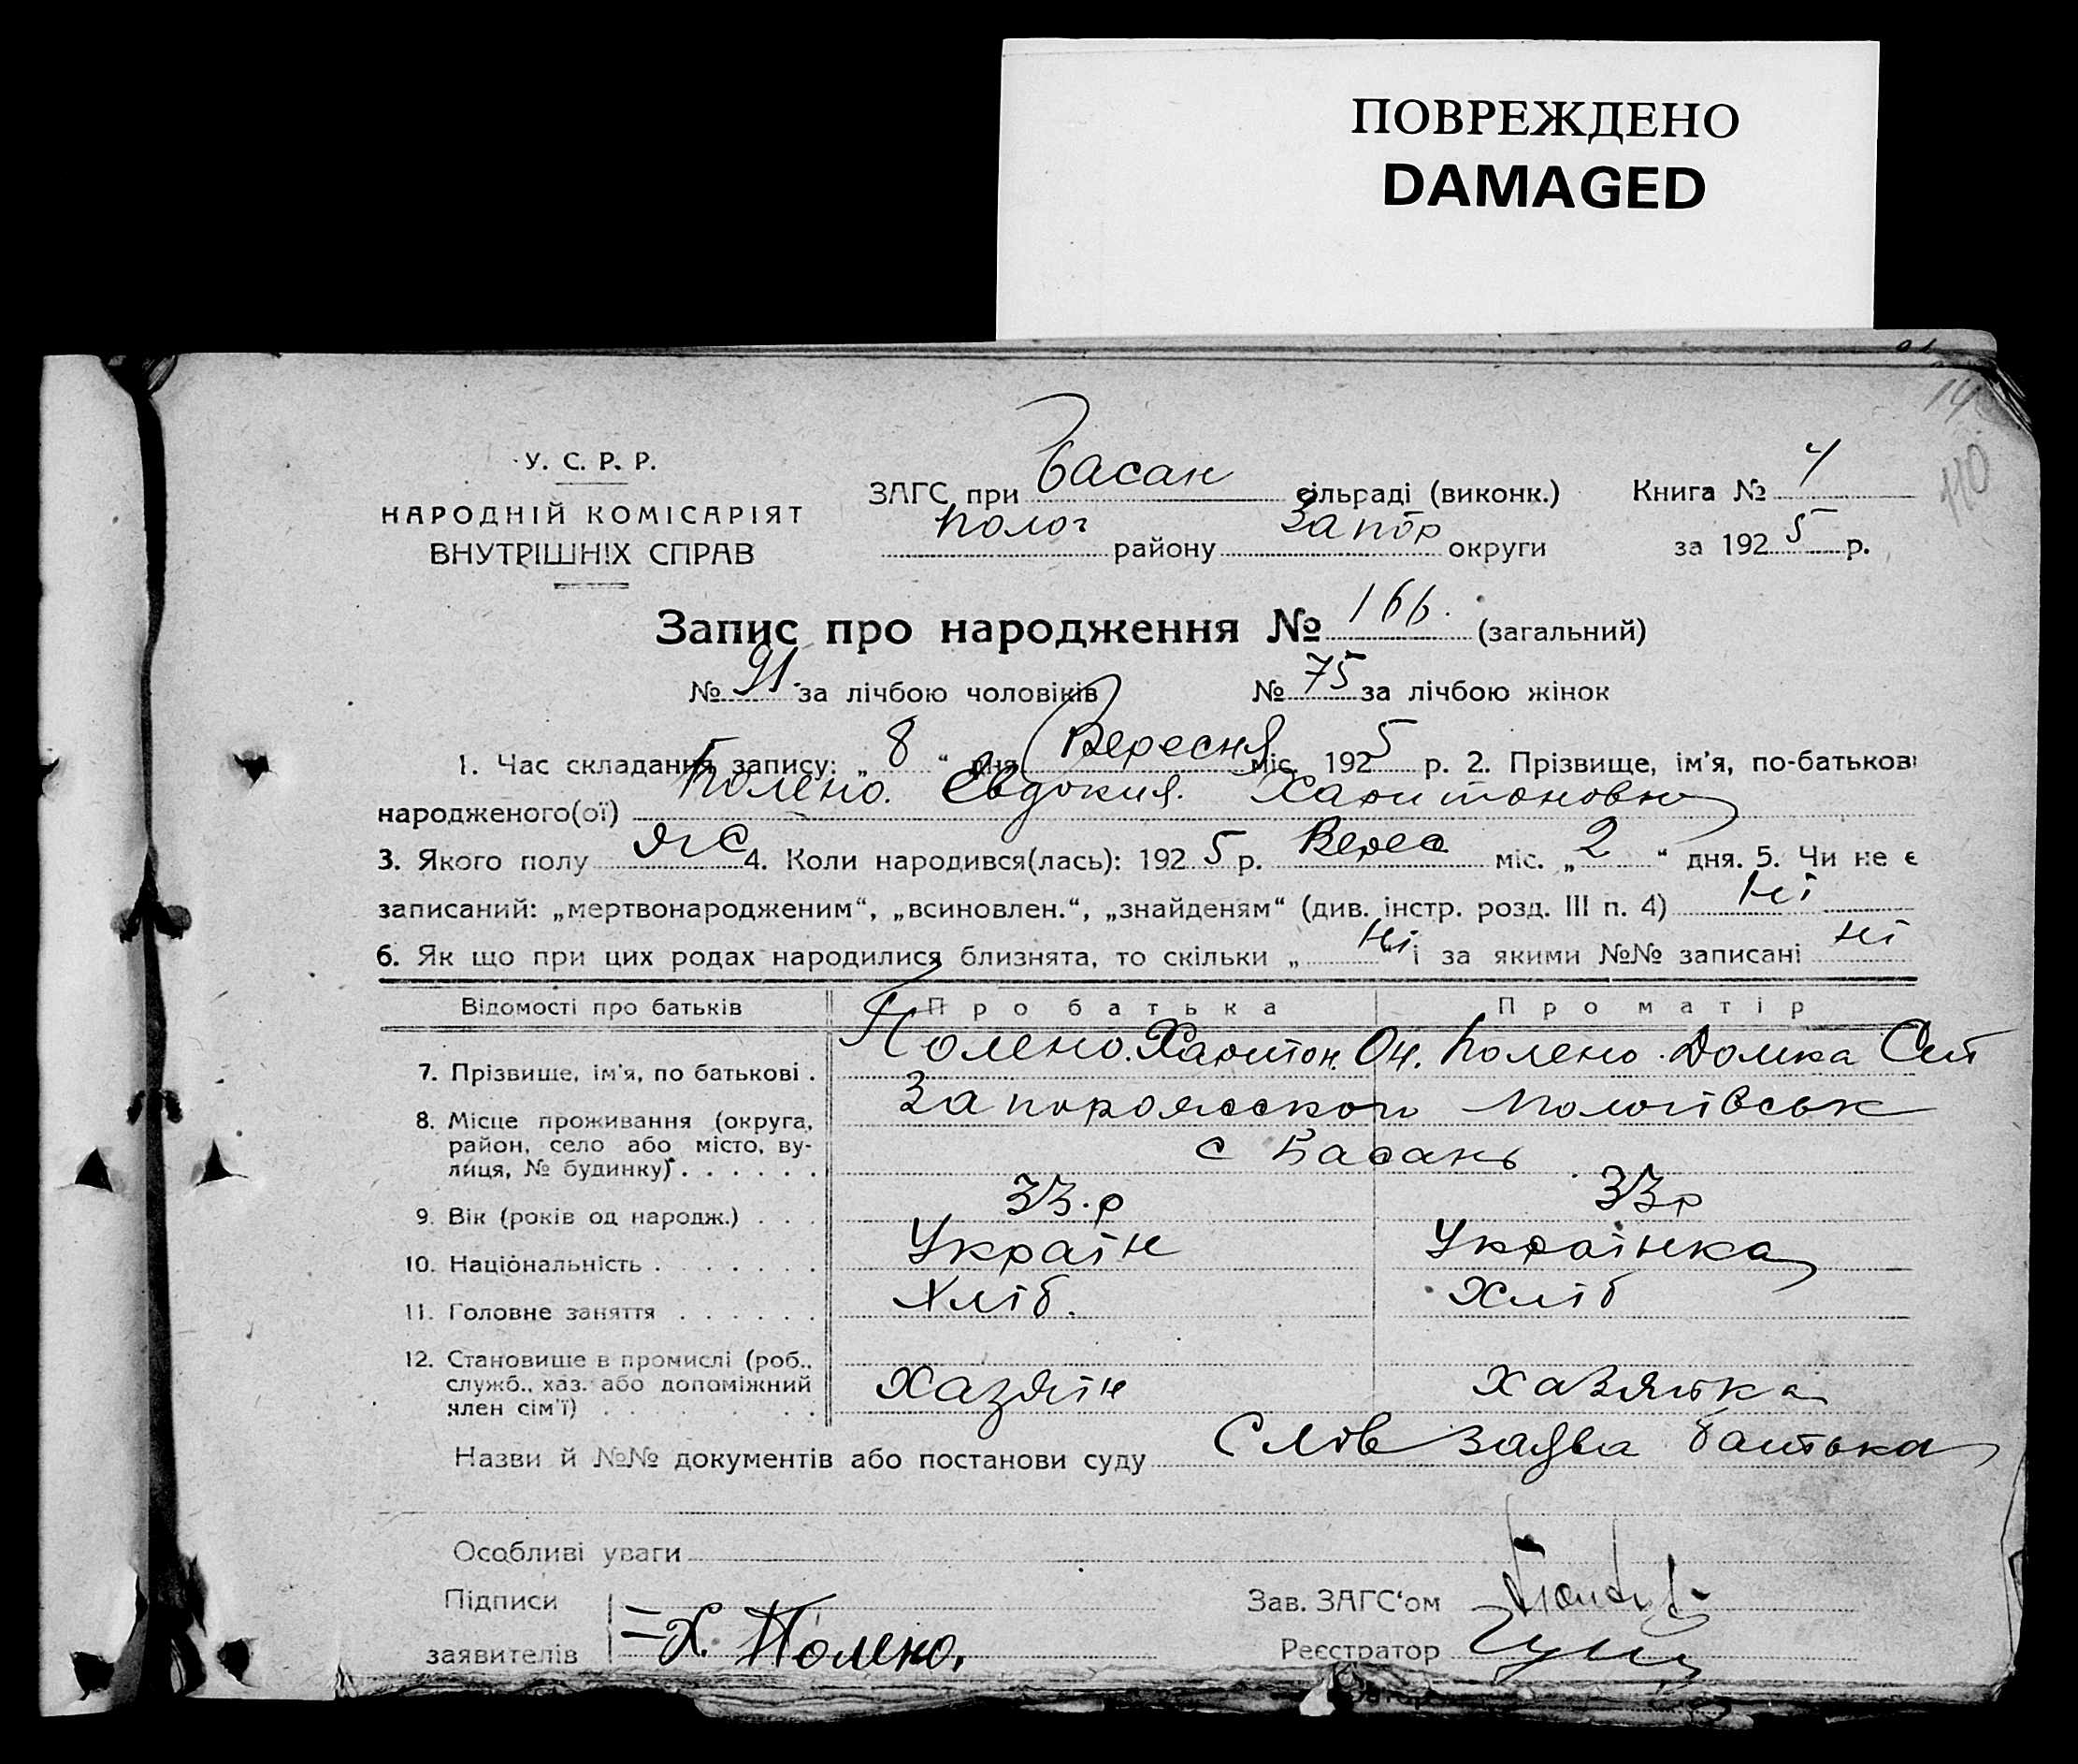 ПОВРЕЖДЕНО
DAMAGED
У. С. Р. Р.
НАРОДНІЙ КОМІСАРІЯТ
ВНУТРІШНІХ СПРАВ
ЗАГС при Басан сільраді (виконк.) Книга № 4
Полог району Запор округи за 1925 р.
140
110
Запис про народження № 166. (загальний)
№ 91. за лічбою чоловіків № 75 за лічбою жінок
1. Час складання запису: „ 8 “ дня Вересня міс. 1925 р. 2. Прізвище, ім'я, по-батькові
народженого(ої) Полено. Евдокия. Харитоновна
3. Якого полу ж 4. Коли народився(лась): 1925 р. Верес міс. „ 2 “ дня. 5. Чи не є
записаний: „мертвонародженим“, „всиновлен.“, „знайденям“ (див. інстр. розд. III п. 4) ні
6. Як що при цих родах народилися близнята, то скільки „ ні “ і за якими №№ записані ні
Відомості про батьків Про батька Про матір
7. Прізвище, ім'я, по батькові . Полено. Харитон. Он. Полено. Домка
8. Місце проживання (округа, Запорожской Пологівськ
район, село або місто, ву- с Басань
лиця, № будинку) . . . . . .
9. Вік (років од народж.) . . . 33.р 33р
10. Національність . . . . . . . Українка
Україн
11. Головне заняття . . . . . . Хліб. Хліб
12. Становище в промислі (роб.,
служб., хаз. або допоміжний Хазяїн Хазяйка
член сім'ї) . . . . . . . .
Назви й №№ документів або постанови суду Слов заява батька
Особливі уваги
Підписи Зав. ЗАГС‘ом
заявителів Х. Полено. Реєстратор